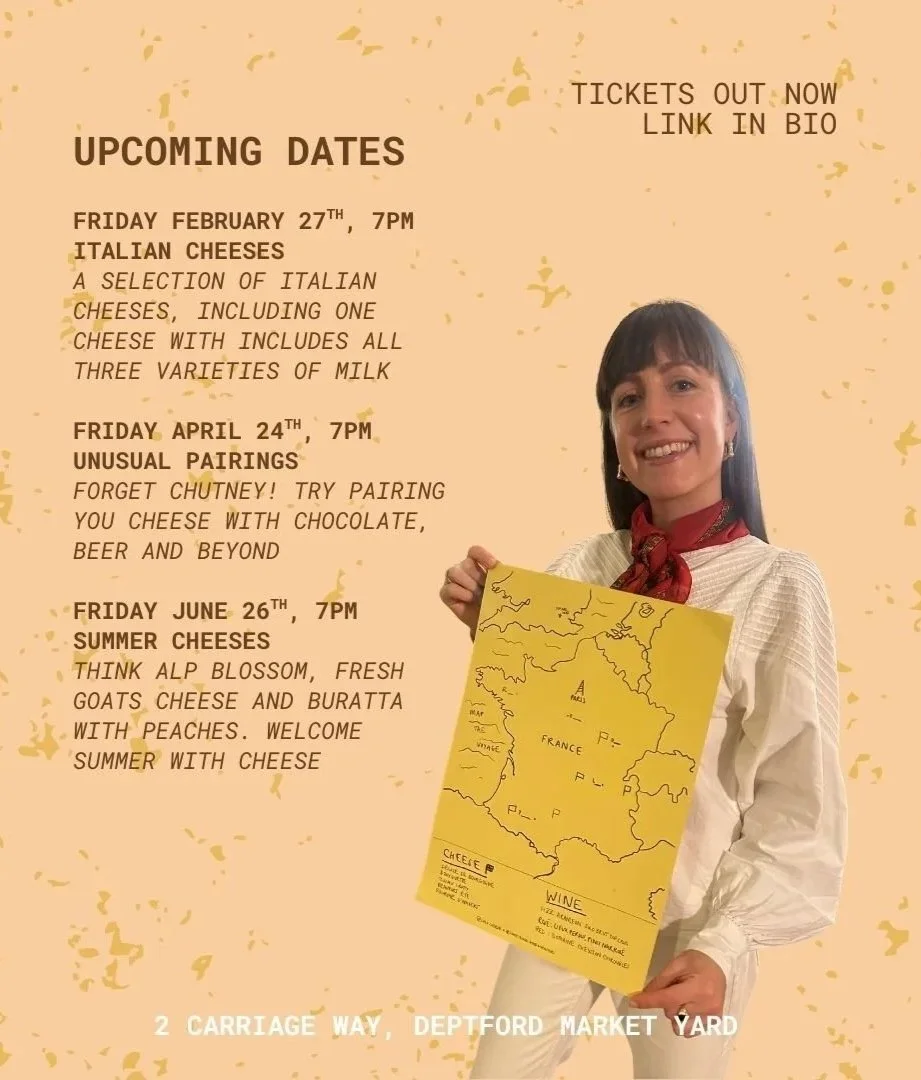 TICKETS OUT NOW
LINK IN BIO
UPCOMING DATES
FRIDAY FEBRUARY 27TH, 7PM
ITALIAN CHEESES
A SELECTION OF ITALIAN
CHEESES, INCLUDING ONE
CHEESE WITH INCLUDES ALL
THREE VARIETIES OF MILK
FRIDAY APRIL 24TH, 7PM
UNUSUAL PAIRINGS
FORGET CHUTNEY! TRY PAIRING
YOU CHEESE WITH CHOCOLATE,
BEER AND BEYOND
FRIDAY JUNE 26TH, 7PM
SUMMER CHEESES
THINK ALP BLOSSOM, FRESH
GOATS CHEESE AND BURATTA
WITH PEACHES. WELCOME
SUMMER WITH CHEESE
PARIS
FRANCE
MAP
THE
VOYAGE
CHEESE
WINE
2 CARRIAGE WAY, DEPTFORD MARKET YARD